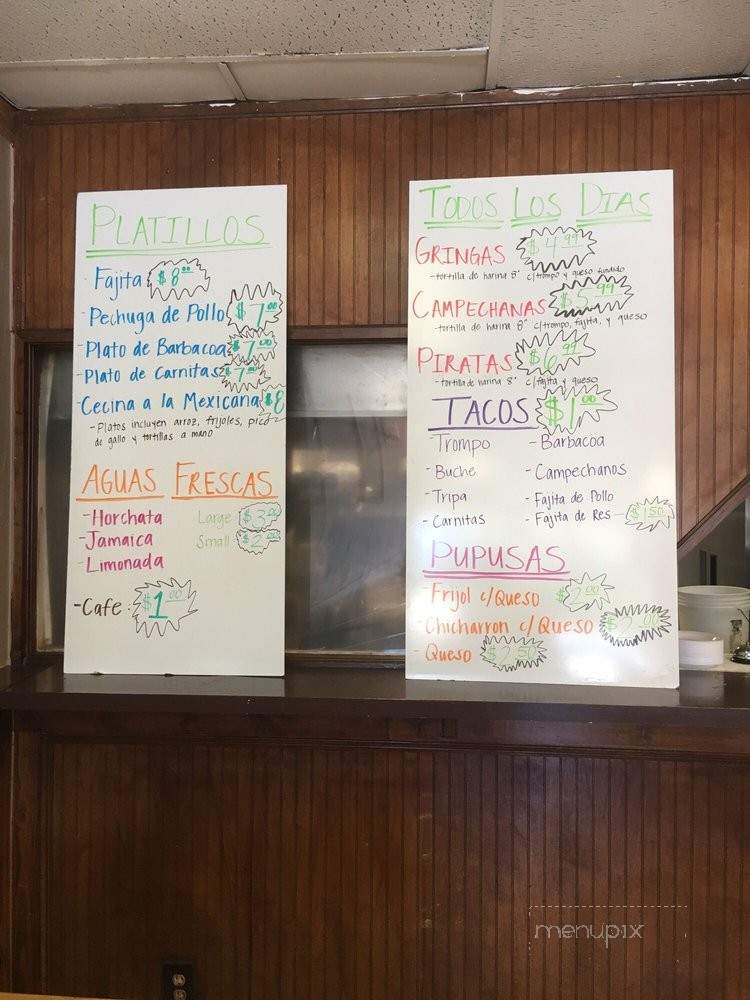 PLATILLOS
Fajita $8.00
- Pechuga de Pollo $7.00
- Plato de Barbacoa $7.00
- Plato de Carnitas $7.00
- Cecina a la Mexicana $8
- Platos incluyen arroz, frijoles, pico
de gallo y tortillas a mano
AGUAS FRESCAS
- Horchata Large $3.00
- Jamaica Small $2.00
- Limonada
- Cafe : $1.00
TODOS LOS DIAS
GRINGAS $4.99
- tortilla de harina 8" c/trompo y queso fundido
CAMPECHANAS $5.99
- tortilla de harina 8" c/trompo, fajita, y queso
PIRATAS $6.99
- tortilla de harina 8" c/fajita y queso
TACOS $1.00
- Trompo - Barbacoa
- Buche - Campechanos
- Tripa - Fajita de Pollo
- Carnitas - Fajita de Res - $1.50
PUPUSAS
- Frijol c/Queso $2.00
- Chicharron c/Queso $2.00
- Queso $2.50
menupix